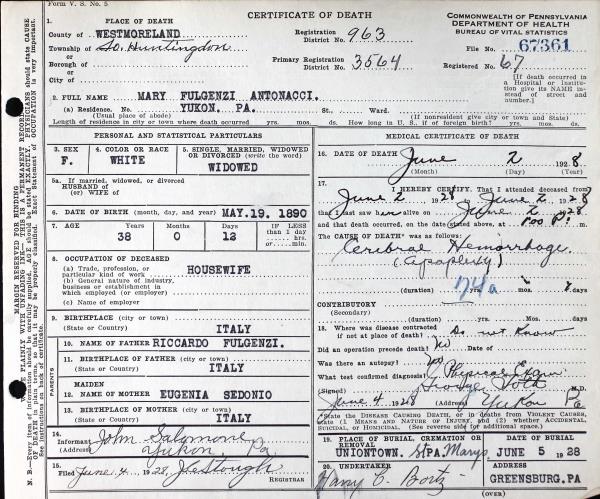 Form V. S. No. 5
CERTIFICATE OF DEATH
COMMONWEALTH OF PENNSYLVANIA
DEPARTMENT OF HEALTH
BUREAU OF VITAL STATISTICS
1. PLACE OF DEATH
County of WESTMORELAND
Registration District No. 963
File No. 67361
Township of So. Huntingdon
or
Borough of
Primary Registration District No. 3564
Registered No. 67
or
City of
[If death occurred in a Hospital or Institution give its NAME instead of street and number.]
2. FULL NAME MARY FULGENZI ANTONACCI.
(a) Residence. No. YUKON. PA. St., Ward.
(Usual place of abode) (If nonresident give city or town and State)
Length of residence in city or town where death occurred yrs. mos. ds. How long in U. S., if of foreign birth? yrs. mos. ds.
PERSONAL AND STATISTICAL PARTICULARS
3. SEX F.
4. COLOR OR RACE WHITE
5. SINGLE, MARRIED, WIDOWED OR DIVORCED (write the word) WIDOWED
5a. If married, widowed, or divorced
HUSBAND of
(or) WIFE of
6. DATE OF BIRTH (month, day, and year) MAY.19. 1890
7. AGE Years Months Days IF LESS than 1 day
38 0 13
8. OCCUPATION OF DECEASED
(a) Trade, profession, or particular kind of work HOUSEWIFE
(b) General nature of industry, business or establishment in which employed (or employer)
(c) Name of employer
9. BIRTHPLACE (city or town)
(State or Country) ITALY
PARENTS
10. NAME OF FATHER RICCARDO FULGENZI.
11. BIRTHPLACE OF FATHER (city or town)
(State or Country) ITALY
MAIDEN
12. NAME OF MOTHER EUGENIA SEDONIO
13. BIRTHPLACE OF MOTHER (city or town)
(State or Country) ITALY
14. Informant John Salomone
(Address) Yukon, Pa
15. Filed June 4, 1928
Registrar
MEDICAL CERTIFICATE OF DEATH
16. DATE OF DEATH June 2 1928
(Month) (Day) (Year)
17. I HEREBY CERTIFY, That I attended deceased from
June 2 1928, to June 2 1928
that I last saw her alive on June 2 1928
and that death occurred, on the date stated above, at 1:00 P.
The CAUSE OF DEATH* was as follows:
Cerebral Hemorrhage
(Apoplexy)
74a
(duration) yrs. mos. ds.
CONTRIBUTORY
(Secondary)
(duration) yrs. mos. ds.
18. Where was disease contracted
if not at place of death? Do not Know
Did an operation precede death? No Date of
Was there an autopsy? No
What test confirmed diagnosis? Physical Exam
(Signed) M.D.
June 4 1928 (Address) Yukon Pa
*State the DISEASE CAUSING DEATH, or in deaths from VIOLENT CAUSES, state 1. MEANS AND NATURE OF INJURY, and (2) whether ACCIDENTAL, SUICIDAL, or HOMICIDAL. (See reverse side for additional space.)
19. PLACE OF BURIAL, CREMATION OR REMOVAL
UNIONTOWN. PA. St Marys
DATE OF BURIAL
JUNE 5 1928
20. UNDERTAKER
Harry C. Bortz
ADDRESS
GREENSBURG.PA
(OVER)